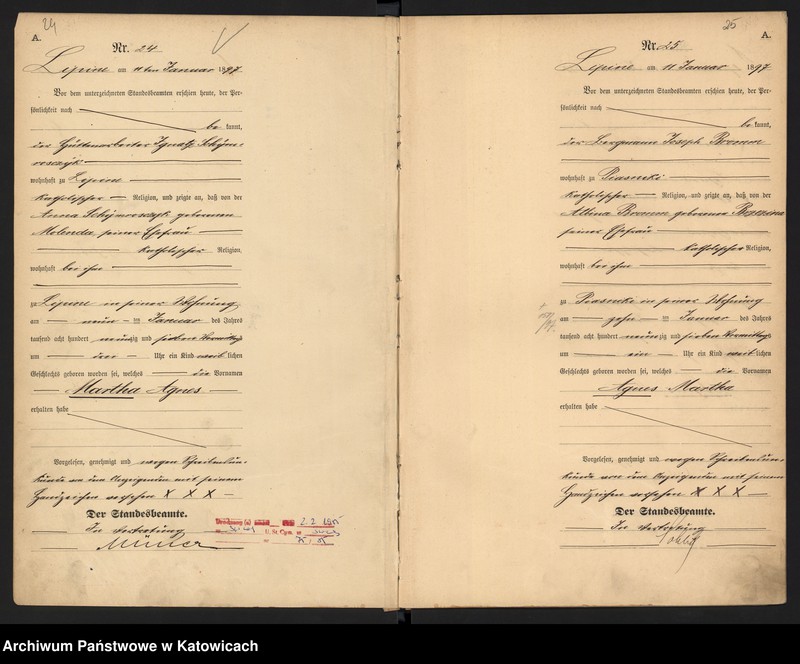 24
A.
Nr. 24
Lipine am 11ten Januar 1897
Vor dem unterzeichneten Standesbeamten erschien heute, der Per-
sönlichkeit nach
be kannt,
der Hüttenarbeiter Ignatz
wohnhaft zu Lipine
katholischer Religion, und zeigte an, daß von der
Anna geborenen
Molenda, seiner Ehefrau
katholischer Religion,
wohnhaft bei ihm
zu Lipine in seiner Wohnung
am neun ten Januar des Jahres
tausend acht hundert neunzig und sieben Vormittags
um drei Uhr ein Kind weiblichen
Geschlechts geboren worden sei, welches die Vornamen
Martha Agnes
erhalten habe
Vorgelesen, genehmigt und wegen Schreibensun-
kunde von dem Anzeigenden mit seinem
Handzeichen versehen X X X
Der Standesbeamte.
In Vertretung
Müller
U. St. Cyw.
25
A.
Nr. 25
Lipine am 11 Januar 1897
Vor dem unterzeichneten Standesbeamten erschien heute, der Per-
sönlichkeit nach
be kannt,
der Bergmann Joseph
wohnhaft zu Piasniki
katholischer Religion, und zeigte an, daß von der
Albina geborene
seiner Ehefrau
katholischer Religion,
wohnhaft bei ihm
zu Piasniki in seiner Wohnung
am zehn ten Januar des Jahres
tausend acht hundert neunzig und sieben Vormittags
um ein Uhr ein Kind weiblichen
Geschlechts geboren worden sei, welches die Vornamen
Agnes Martha
erhalten habe
Vorgelesen, genehmigt und wegen Schreibensun-
kunde von dem Anzeigenden mit seinem
Handzeichen versehen X X X
Der Standesbeamte.
In Vertretung
Archiwum Państwowe w Katowicach